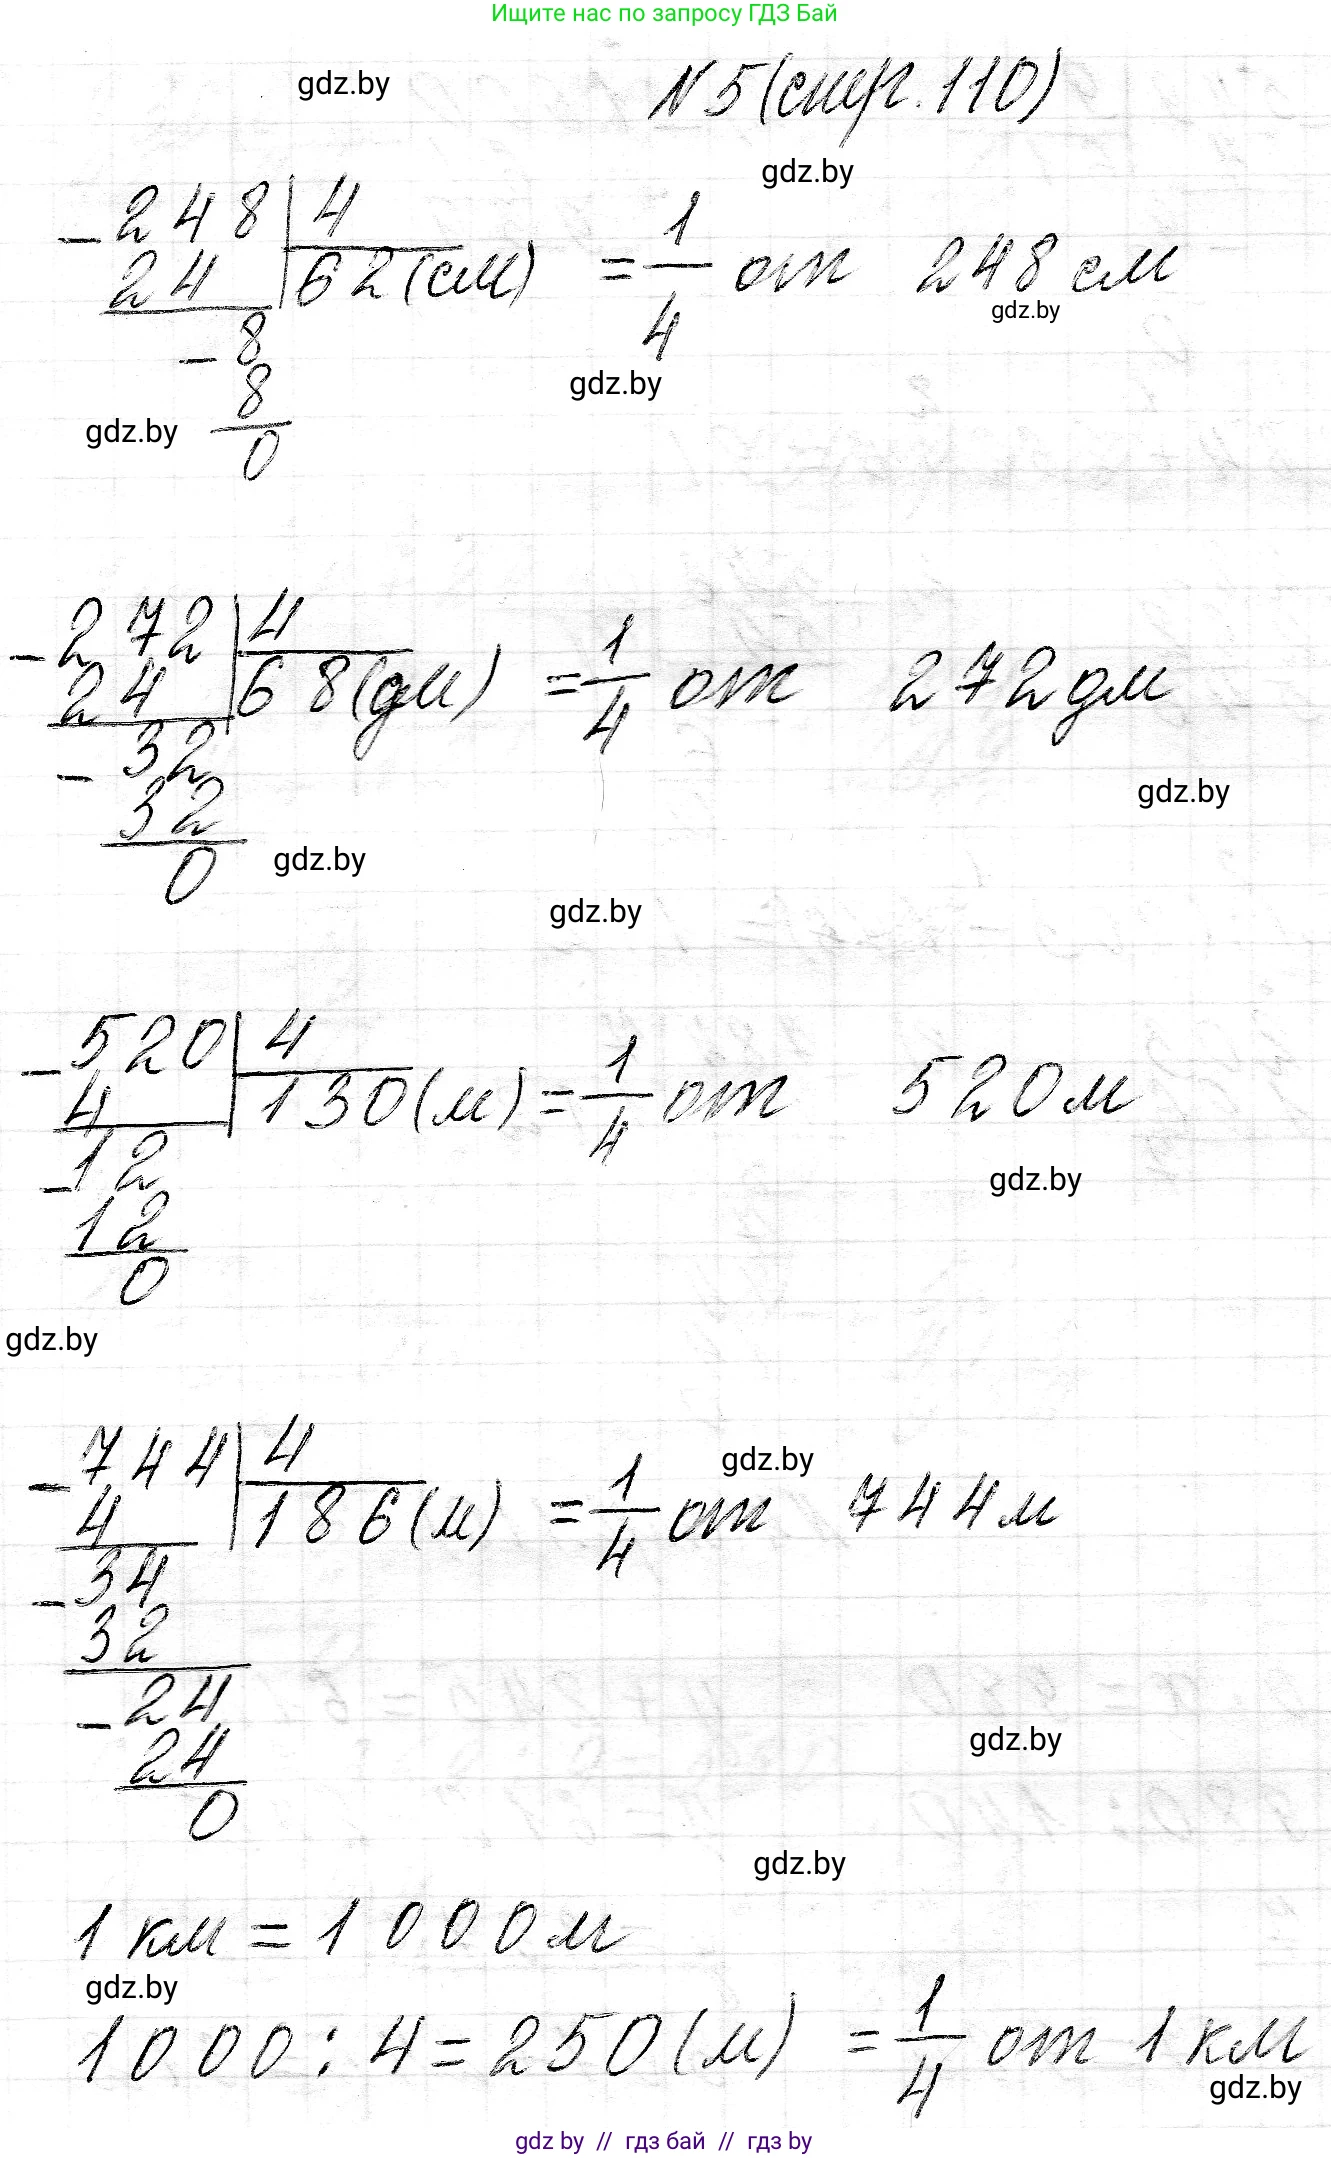 Ищите нас по запросу ГДЗ Бай
gdz.by
N 5 (стр. 110)
gdz.by
- 248 | 4
24 | 62 (см) = 1/4 от 248 см
gdz.by
- 8
gdz.by
8
gdz.by
0
- 272 | 4
24 | 68 (дм) = 1/4 от 272 дм
- 32
gdz.by
32
0
gdz.by
gdz.by
- 520 | 4
4 | 130 (м) = 1/4 от 520 м
- 12
gdz.by
12
0
gdz.by
- 744 | 4
gdz.by
4 | 186 (м) = 1/4 от 744 м
- 34
32
- 24
gdz.by
24
0
gdz.by
1 км = 1000 м
gdz.by
1000 : 4 = 250 (м) = 1/4 от 1 км
gdz.by
gdz by // гдз бай // гдз by